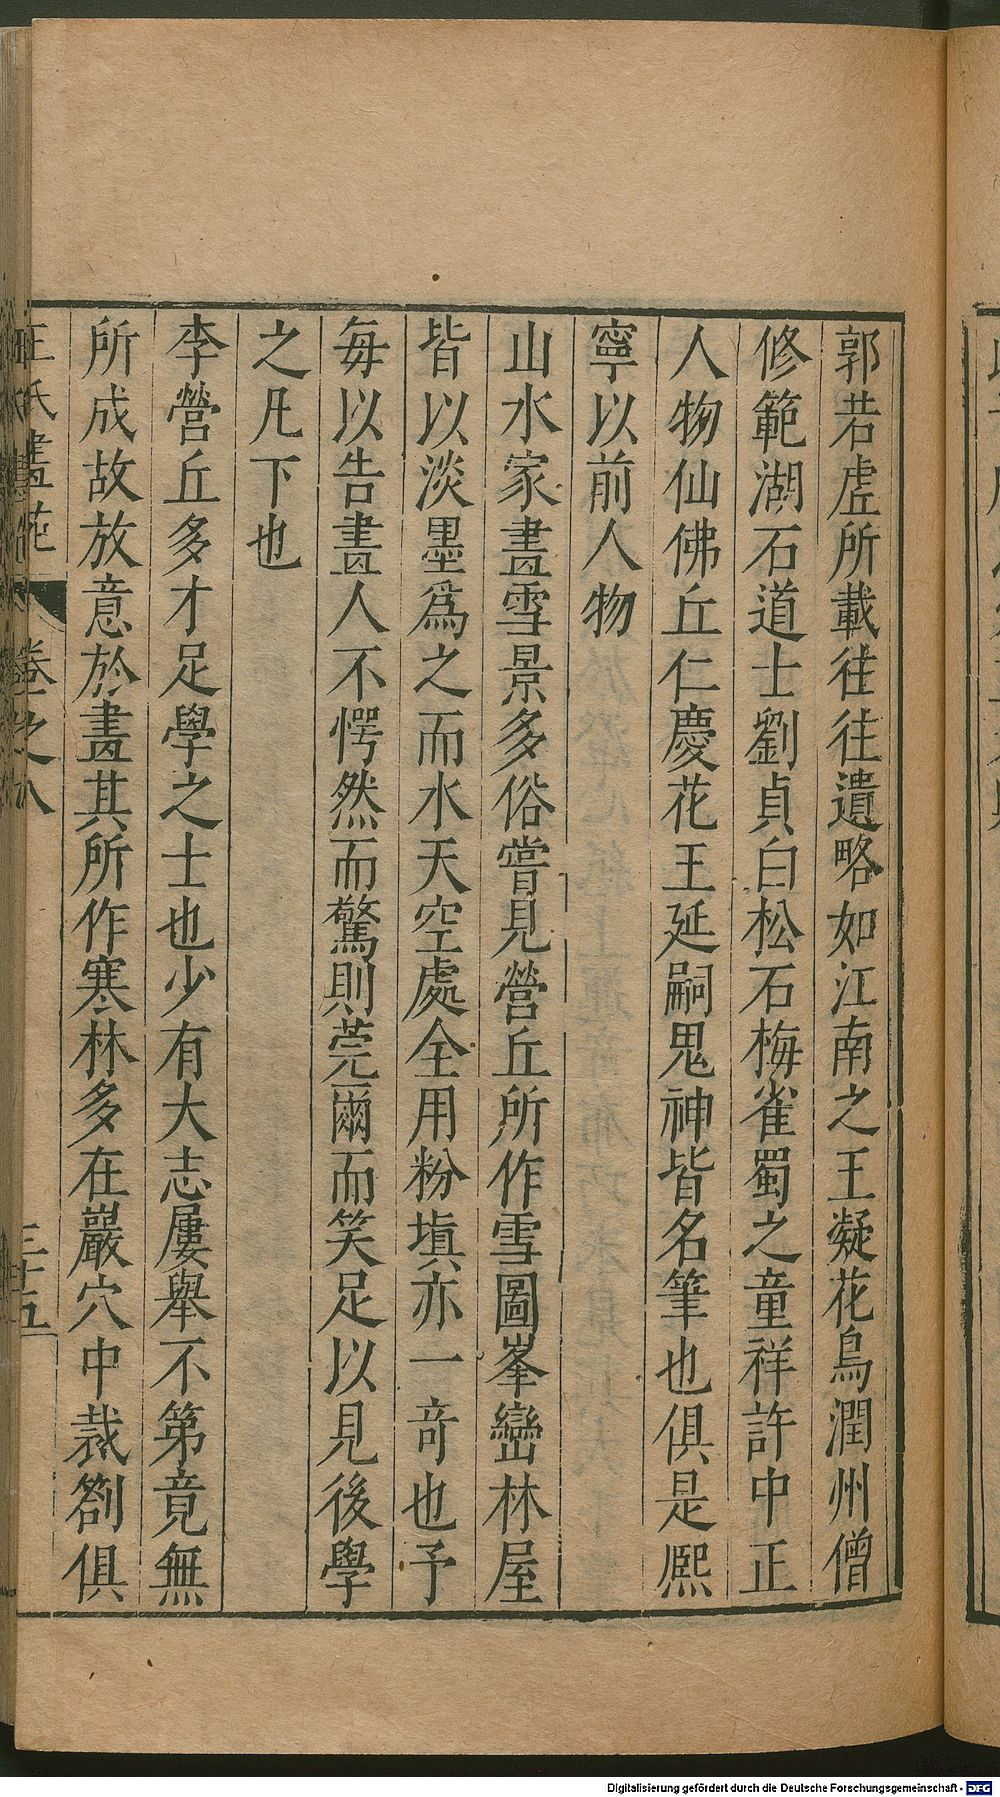 郭若虛所載往往遺略如江南之王凝花鳥潤州僧
修範湖石道士劉貞白松石梅雀蜀之童祥許中正
人物仙佛丘仁慶花王延嗣鬼神皆名筆也俱是熈
寧以前人物
山水家畫雪景多俗嘗見營丘所作雪圖峯巒林屋
皆以淡墨爲之而水天空處全用粉塡亦一奇也予
每以告畫人不愕然而驚則莞爾而笑足以見後學
之凡下也
李營丘多才足學之士也少有大志屢舉不第竟無
所成故放意於畫其所作寒林多在巖穴中裁劄俱
王氏畫苑 卷之八 三十五
Digitalisierung gefördert durch die Deutsche Forschungsgemeinschaft - DFG